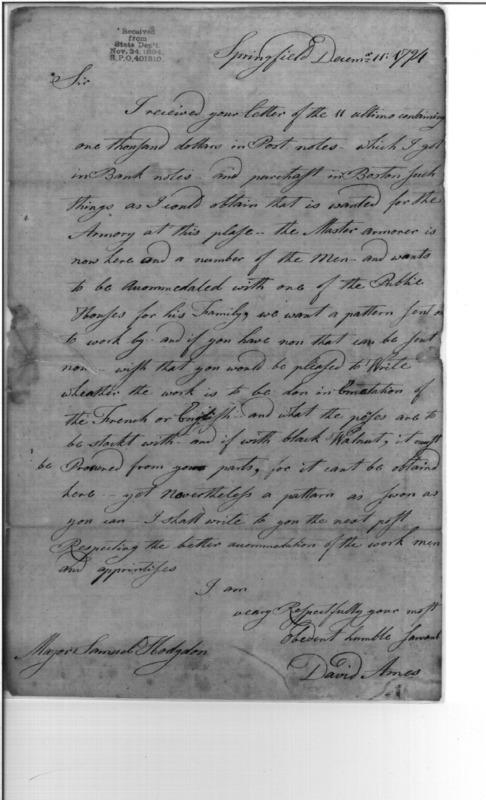 Received
from
State Dep't.
Nov. 24, 1894.
R.P.O, 401810.
Springfield Decemr. 11: 1794
Sir
I received your letter of the 11 ultimo containing
one thousand dollars in Post notes – which I got
in Bank notes – and purchast in Boston such
things as I could obtain that is wanted for the
Armory at this plase – the Master armorer is
now here and a number of the Men – and wants
to be accommedated with one of the Public
Houses for his Family, we want a pattern sent on
to work by – and if you have non that can be sent
now – wish that you would be pleased to Write
wheather the work is to be don in Emetation of
the French or English – and what the peises are to
be stockt with – and if with black Walnut, it must
be Procured from your parts, for it cant be obtaind
here – yet Nevertheless a pattarn as soon as
you can – I shall write to you the next post
Respecting the better accommodation of the work men
and apprintises
I am
veary Respectfully your most
Obedent humble Servant
Major Samuel Hodgdon
David Ames